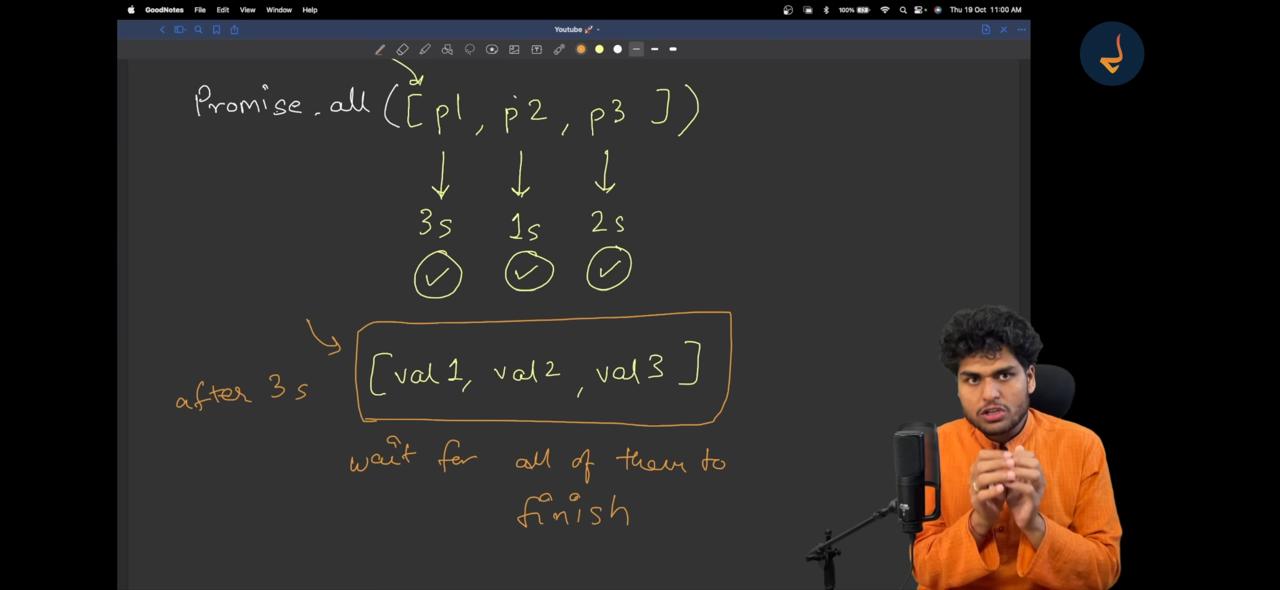 GoodNotes File Edit View Window Help 100% Thu 19 Oct 11:00 AM
Youtube 🚀
Promise.all ([ p1, p2, p3 ])
3s 1s 2s
[val 1, val 2, val 3 ]
after 3 s
wait for all of them to
finish